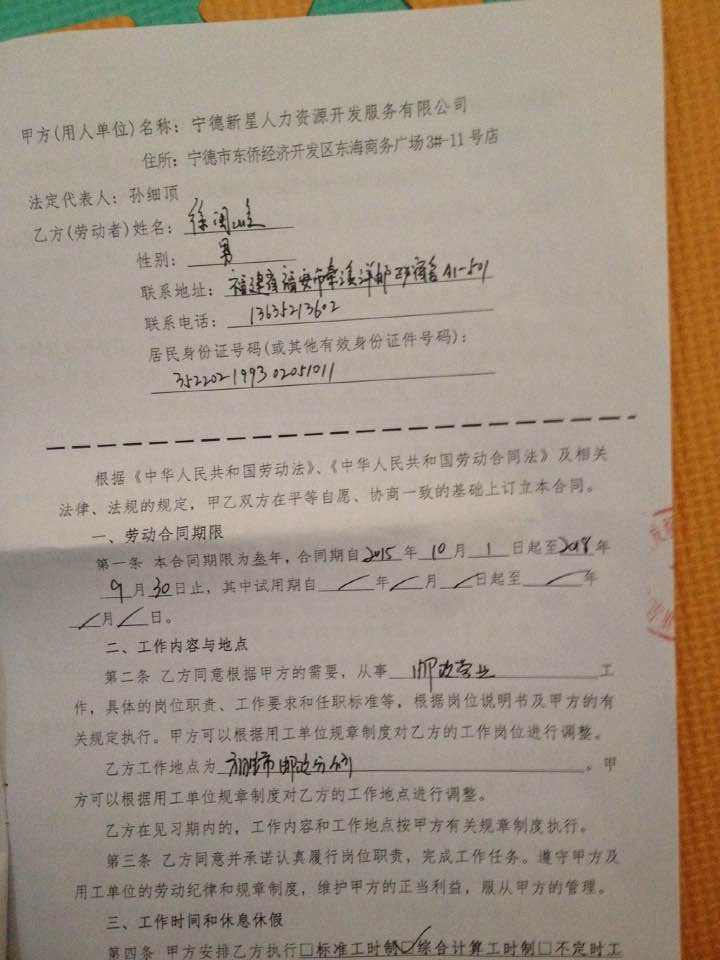 甲方(用人单位)名称：宁德新星人力资源开发服务有限公司
住所：宁德市东侨经济开发区东海商务广场3#-11号店
法定代表人：孙细顶
乙方(劳动者)姓名：徐闽
性别：男
联系地址：福建省福安市秦溪洋邮政宿舍A1-501
联系电话：13635213602
居民身份证号码(或其他有效身份证件号码)：
352202199302051011
根据《中华人民共和国劳动法》、《中华人民共和国劳动合同法》及相关
法律、法规的规定，甲乙双方在平等自愿、协商一致的基础上订立本合同。
一、劳动合同期限
第一条 本合同期限为叁年，合同期自2015年10月1日起至2018年
9月30日止，其中试用期自／年／月／日起至／年
／月／日。
二、工作内容与地点
第二条 乙方同意根据甲方的需要，从事邮政营业工
作，具体的岗位职责、工作要求和任职标准等，根据岗位说明书及甲方的有
关规定执行。甲方可以根据用工单位规章制度对乙方的工作岗位进行调整。
乙方工作地点为市邮政分公司。甲
方可以根据用工单位规章制度对乙方的工作地点进行调整。
乙方在见习期内的，工作内容和工作地点按甲方有关规章制度执行。
第三条 乙方同意并承诺认真履行岗位职责，完成工作任务。遵守甲方及
用工单位的劳动纪律和规章制度，维护甲方的正当利益，服从甲方的管理。
三、工作时间和休息休假
第四条 甲方安排乙方执行□标准工时制☑综合计算工时制□不定时工